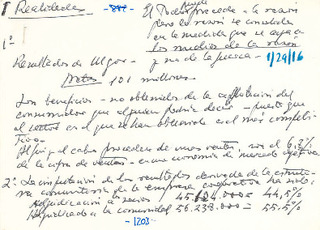 I Realidades
El Poder procede - la razón
pero la razón se consolida
en la medida que se apoya
los medios de la razón
1º
y no de la fuerza - 1/29/16
Resultados de Ulgor -
Netos 101 millones.
Son beneficios - no obtenidos de la explotación del
consumidor que alguien podría decir - puesto que
el sector en el que se han obtenido es el más competi-
tivo -
Al fin y al cabo proceden de unas ventas, son el 6,3%
de la cifra de ventas - en una economía de mercado
2º La imputación de los resultados derivada de la estructu-
ra comunitaria de la empresa cooperativa ha sido:
Adjudicación a socios 45.124.000 = 44,5%
Adjudicados a la comunidad 56.233.000 = 55.5%
-1203-